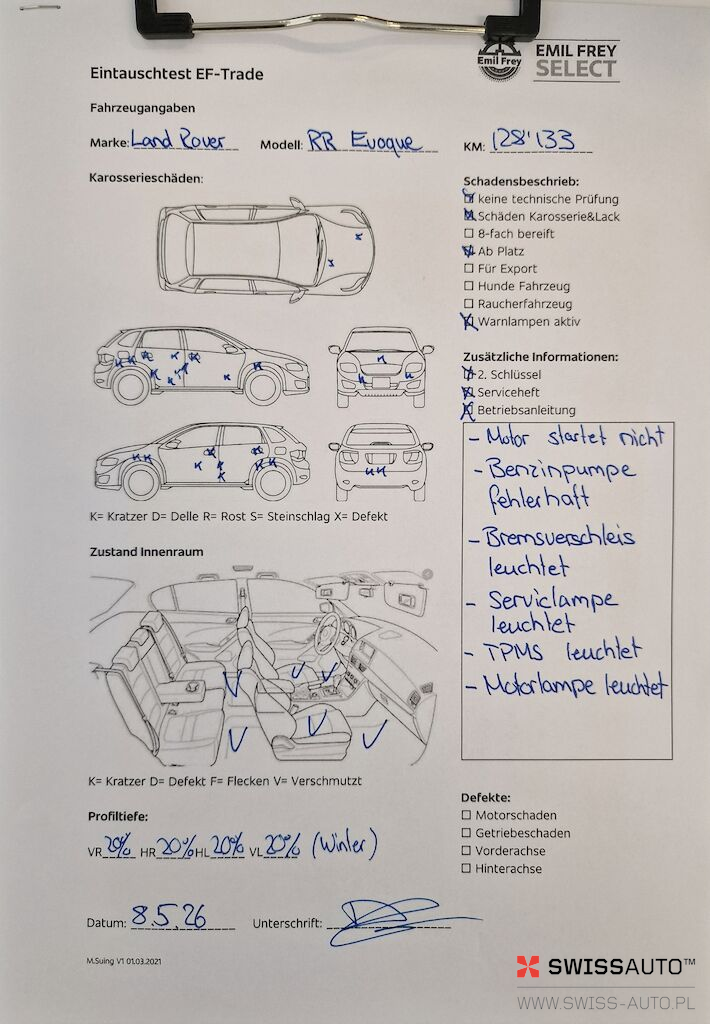 Emil Frey
EMIL FREY
SELECT
Eintauschtest EF-Trade
Fahrzeugangaben
Marke: Land Rover Modell: RR Evoque KM: 128'133
Karosserieschäden:
Schadensbeschrieb:
keine technische Prüfung
Schäden Karosserie&Lack
8-fach bereift
Ab Platz
Für Export
Hunde Fahrzeug
Raucherfahrzeug
Warnlampen aktiv
Zusätzliche Informationen:
2. Schlüssel
Serviceheft
Betriebsanleitung
- Motor startet nicht
- Benzinpumpe
fehlerhaft
- Bremsverschleis
leuchtet
- Serviclampe
leuchtet
- TPMS leuchtet
- Motorlampe leuchtet
K= Kratzer D= Delle R= Rost S= Steinschlag X= Defekt
Zustand Innenraum
K= Kratzer D= Defekt F= Flecken V= Verschmutzt
Profiltiefe:
VR 20% HR 20% HL 20% VL 20% (Winter)
Defekte:
Motorschaden
Getriebeschaden
Vorderachse
Hinterachse
Datum: 8.5.26 Unterschrift:
M.Suing V1 01.03.2021
SWISSAUTO™
WWW.SWISS-AUTO.PL